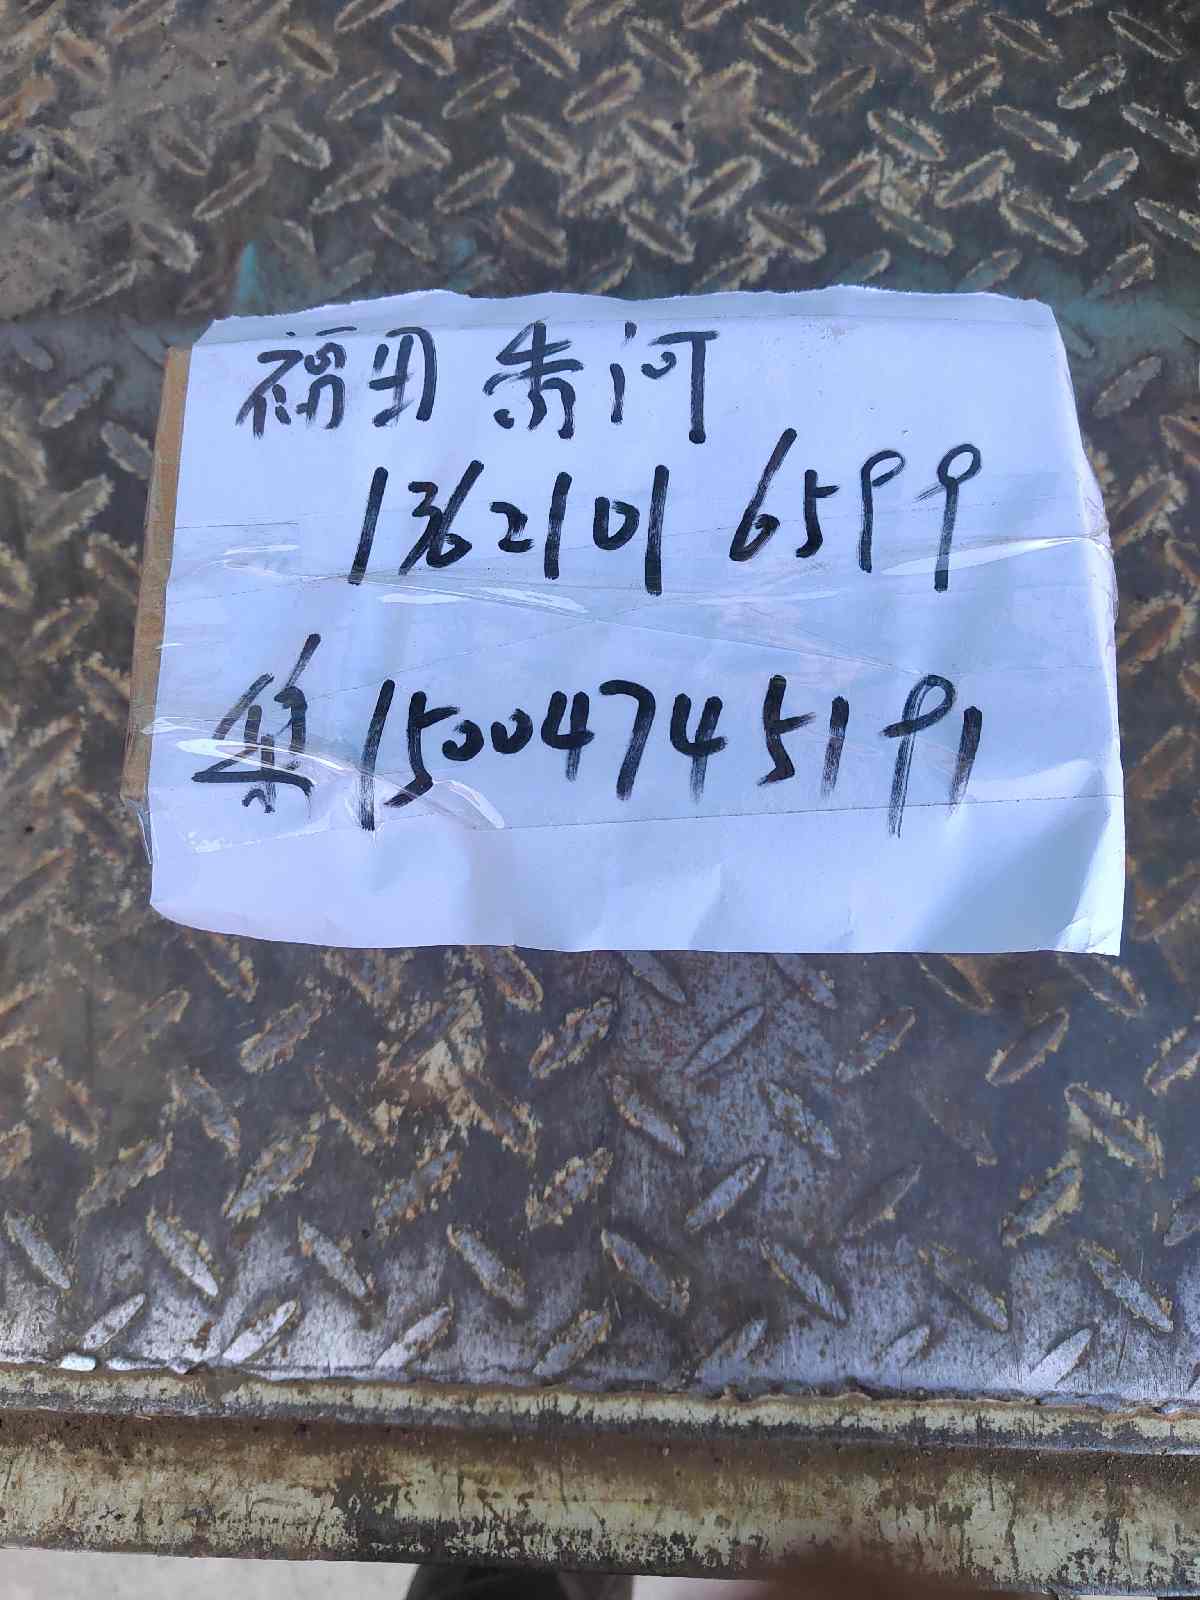 福田 黄河
13621016599
集 15004745191